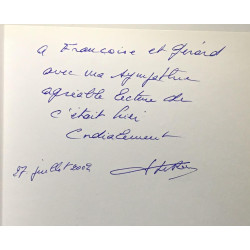 à Françoise et Gérard
avec ma sympathie
agréable lecture de
c'était hier
Cordialement
27 juillet 2002